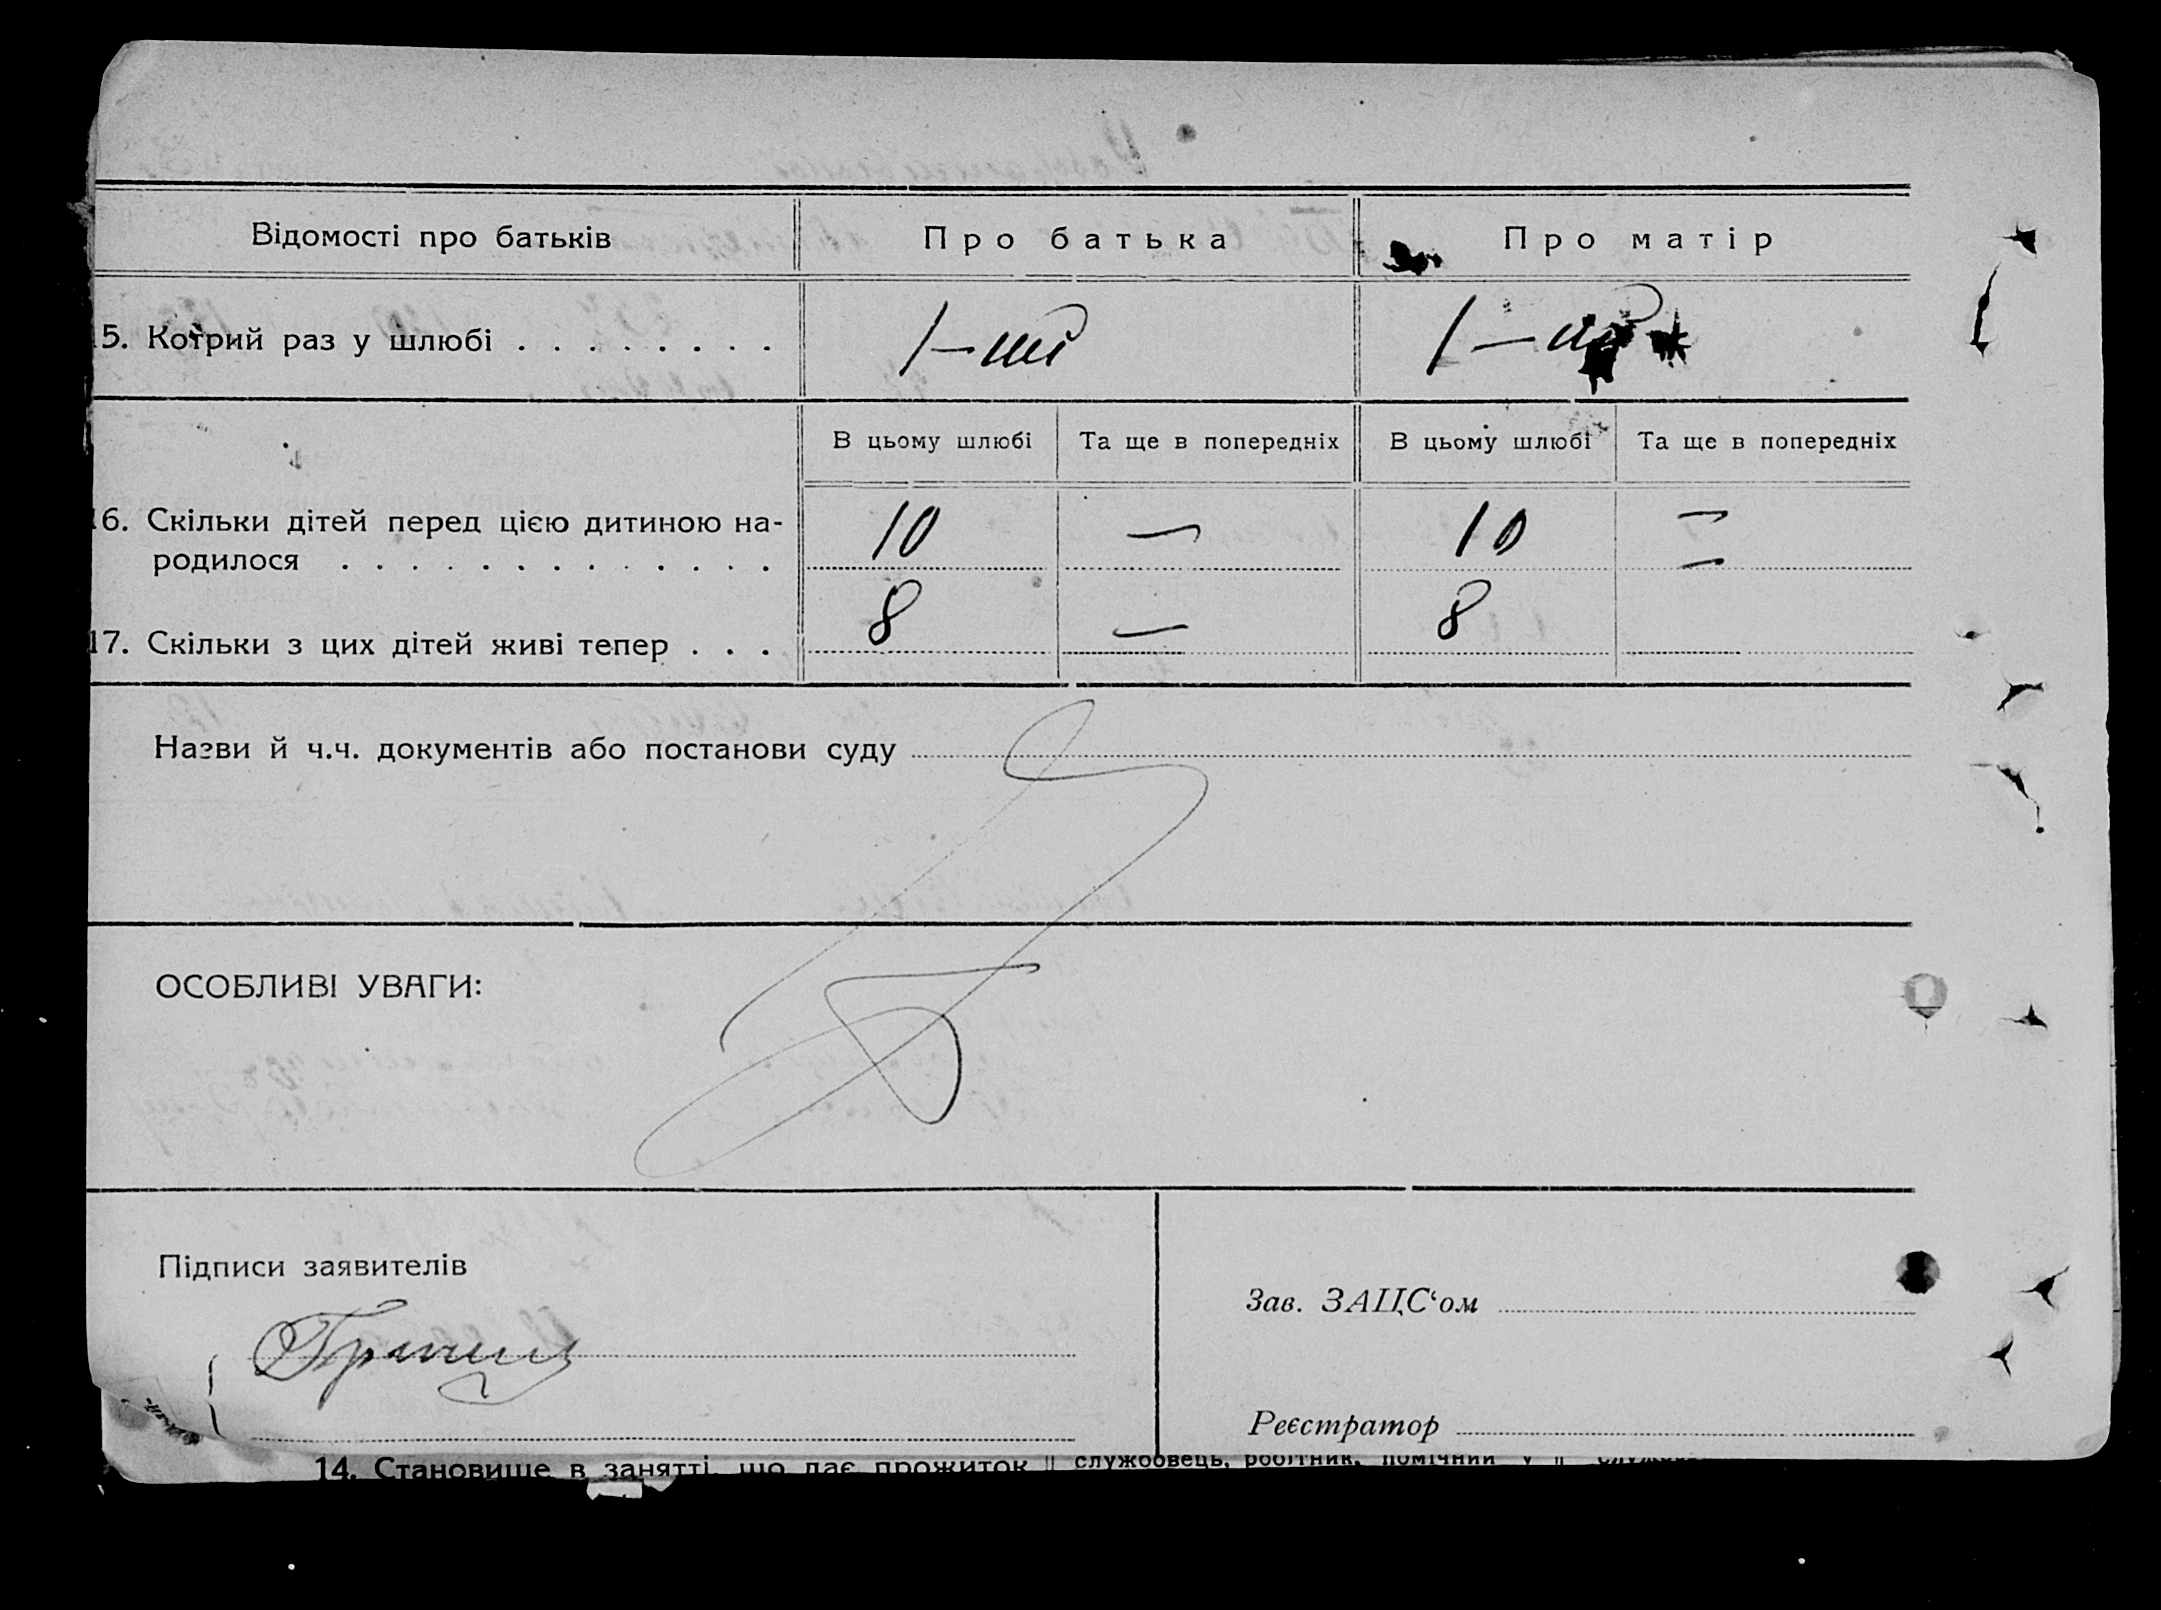 Відомості про батьків Про батька Про матір
5. Котрий раз у шлюбі . . . . . . . . 1–ший 1–ший
В цьому шлюбі Та ще в попередніх В цьому шлюбі Та ще в попередніх
16. Скільки дітей перед цією дитиною на-
родилося . . . . . . . . . . . . . 10 — 10 —
17. Скільки з цих дітей живі тепер . . . 8 — 8 —
Назви й ч.ч. документів або постанови суду
ОСОБЛИВІ УВАГИ:
Підписи заявителів
Зав. ЗАЦС‘ом
Реєстратор
14. Становище в занятті, що дає прожиток службовець, робітник, помічний у